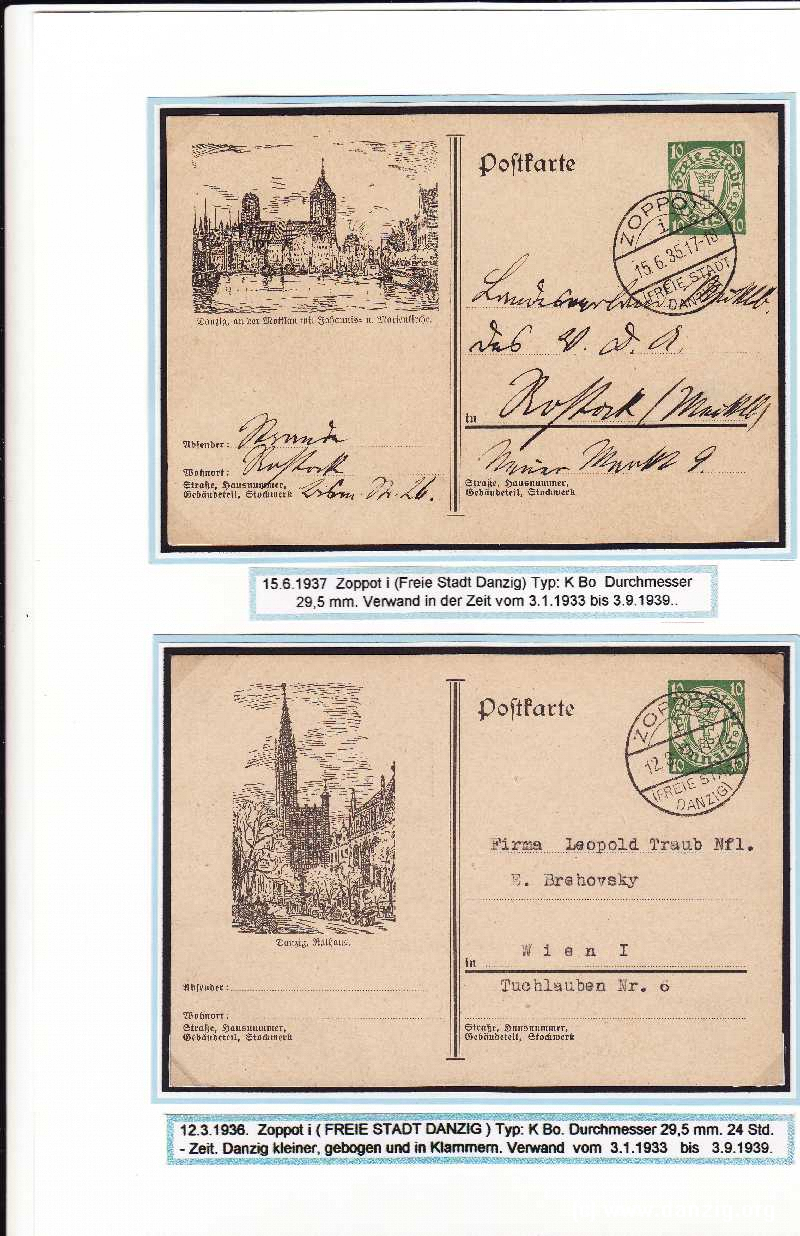 Postkarte
10 10
Freie Stadt
10 10
ZOPPOT
i
15.6.35.17-18
(FREIE STADT
DANZIG)
Danzig, an der Mottlau mit Johannis- u. Marienkirche.
des V. D. A.
in Rostock (Meckl)
Neuer Markt 9.
Straße, Hausnummer,
Gebäudeteil, Stockwerk
Absender:
Wohnort: Rostock
Straße, Hausnummer,
Gebäudeteil, Stockwerk Str. 26.
15.6.1937 Zoppot i (Freie Stadt Danzig) Typ: K Bo Durchmesser
29,5 mm. Verwand in der Zeit vom 3.1.1933 bis 3.9.1939..
Postkarte
10 10
Danzig
10 10
ZOPPOT
12.
(FREIE STADT
DANZIG)
Danzig, Rathaus.
Firma Leopold Traub Nfl.
E. Brehovsky
in Wien I
Tuchlauben Nr. 6
Straße, Hausnummer,
Gebäudeteil, Stockwerk
Absender:
Wohnort:
Straße, Hausnummer,
Gebäudeteil, Stockwerk
12.3.1936. Zoppot i ( FREIE STADT DANZIG ) Typ: K Bo. Durchmesser 29,5 mm. 24 Std.
- Zeit. Danzig kleiner, gebogen und in Klammern. Verwand vom 3.1.1933 bis 3.9.1939.